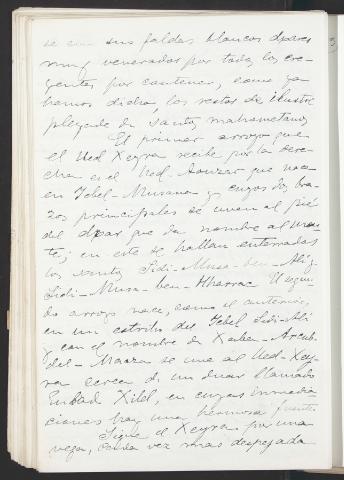 se en sus faldas blancos dxares
muy venerados por todos los cre-
yentes por contener, como ya
hemos dicho, los restos de ilustre
pleyade de santos mahometanos
El primer arroyo que
el Ued Xeyra recibe por la dere-
cha es el Ued Aouzar que nace
en Yebel-Musana y cuyos dos bra-
zos principales se unen al pié
del dxar que da nombre al mon-
te; en este se hallan enterrados
los santos Sidi-Musa-ben-Ali y
Sidi-Musa-ben-Harrac. El segun-
do arroyo nace, como el anterior,
en un estribo del Yebel Sidi-Ali
y con el nombre de
del-Maaza se une al Ued-Xey-
ra cerca de un duar llamado
Xilel, en cuyas inmedia-
ciones hay una hermosa fuente.
Sigue el Xeyra por una
vega, cada vez mas despejada